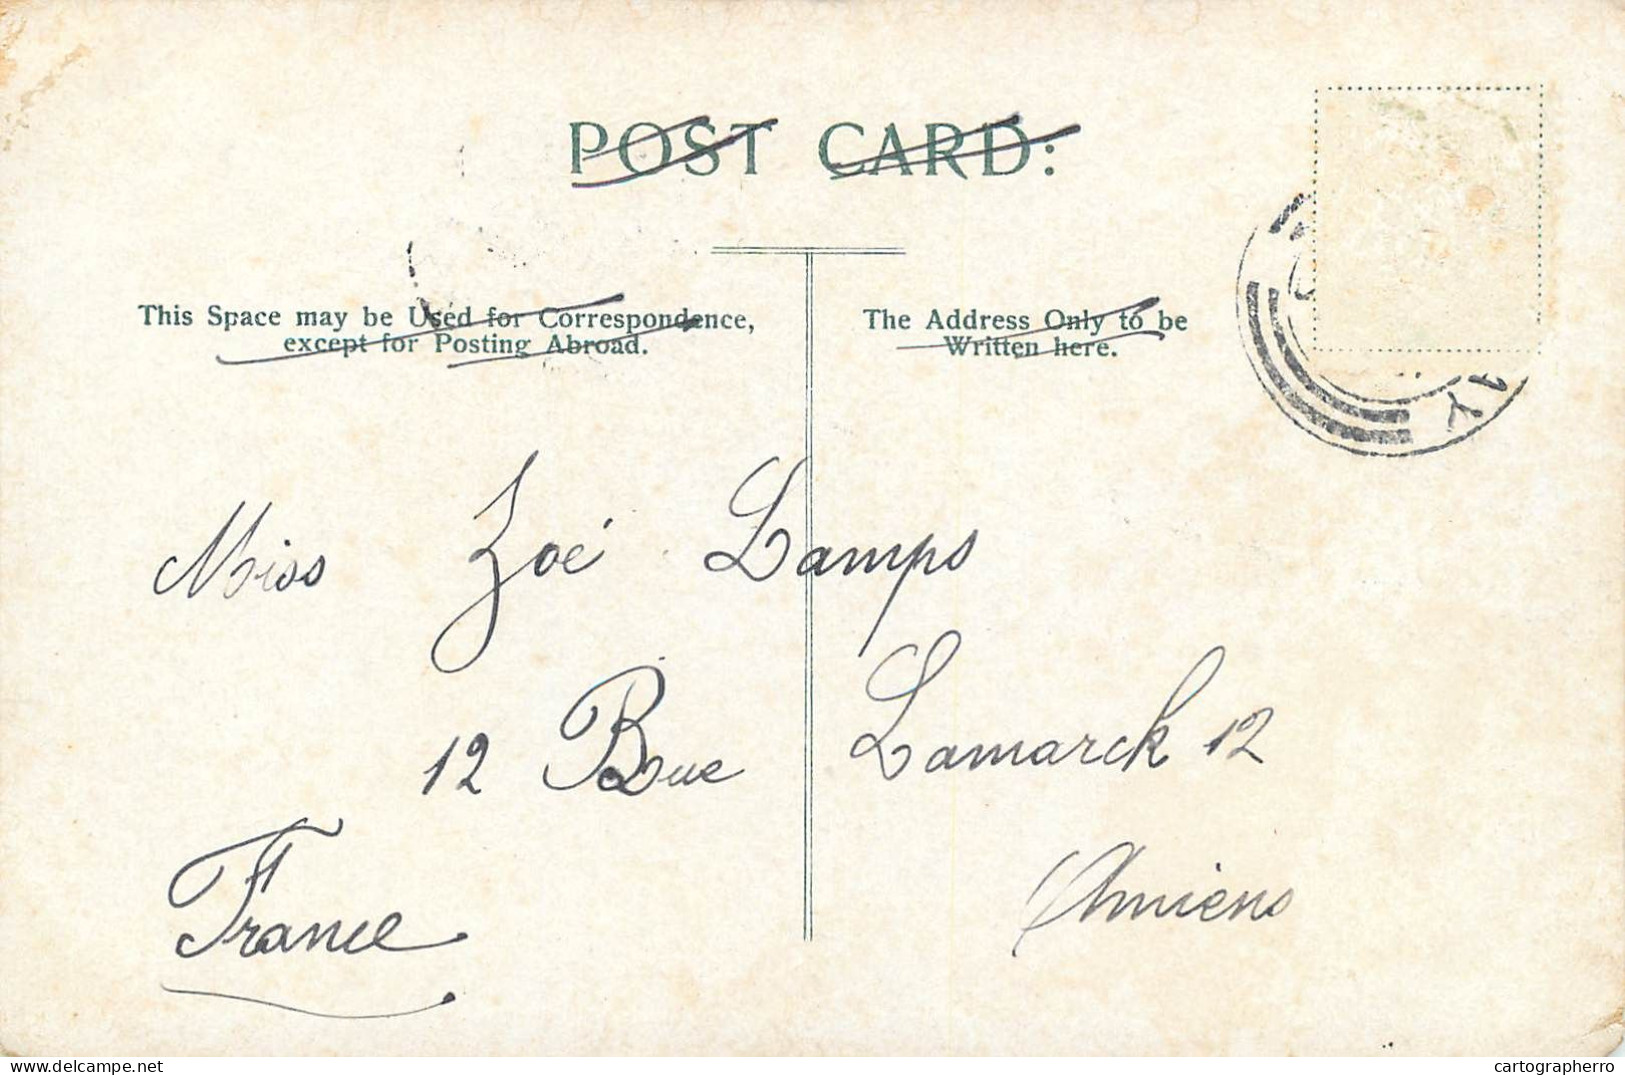 POST CARD:
This Space may be Used for Correspondence,
except for Posting Abroad.
The Address Only to be
Written here.
Miss Zoé Lamps
12 Rue Lamarck 12
Amiens
France
cartographerro